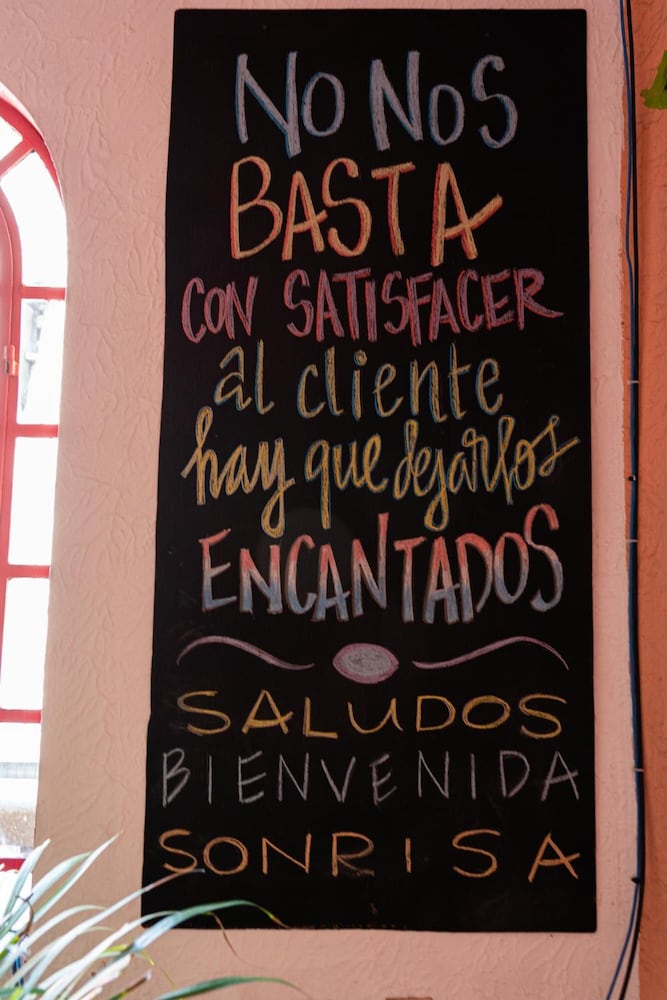 No Nos
BASTA
CON SATISFACER
al cliente
hay que dejarlos
ENCANTADOS
SALUDOS
BIENVENIDA
SONRISA